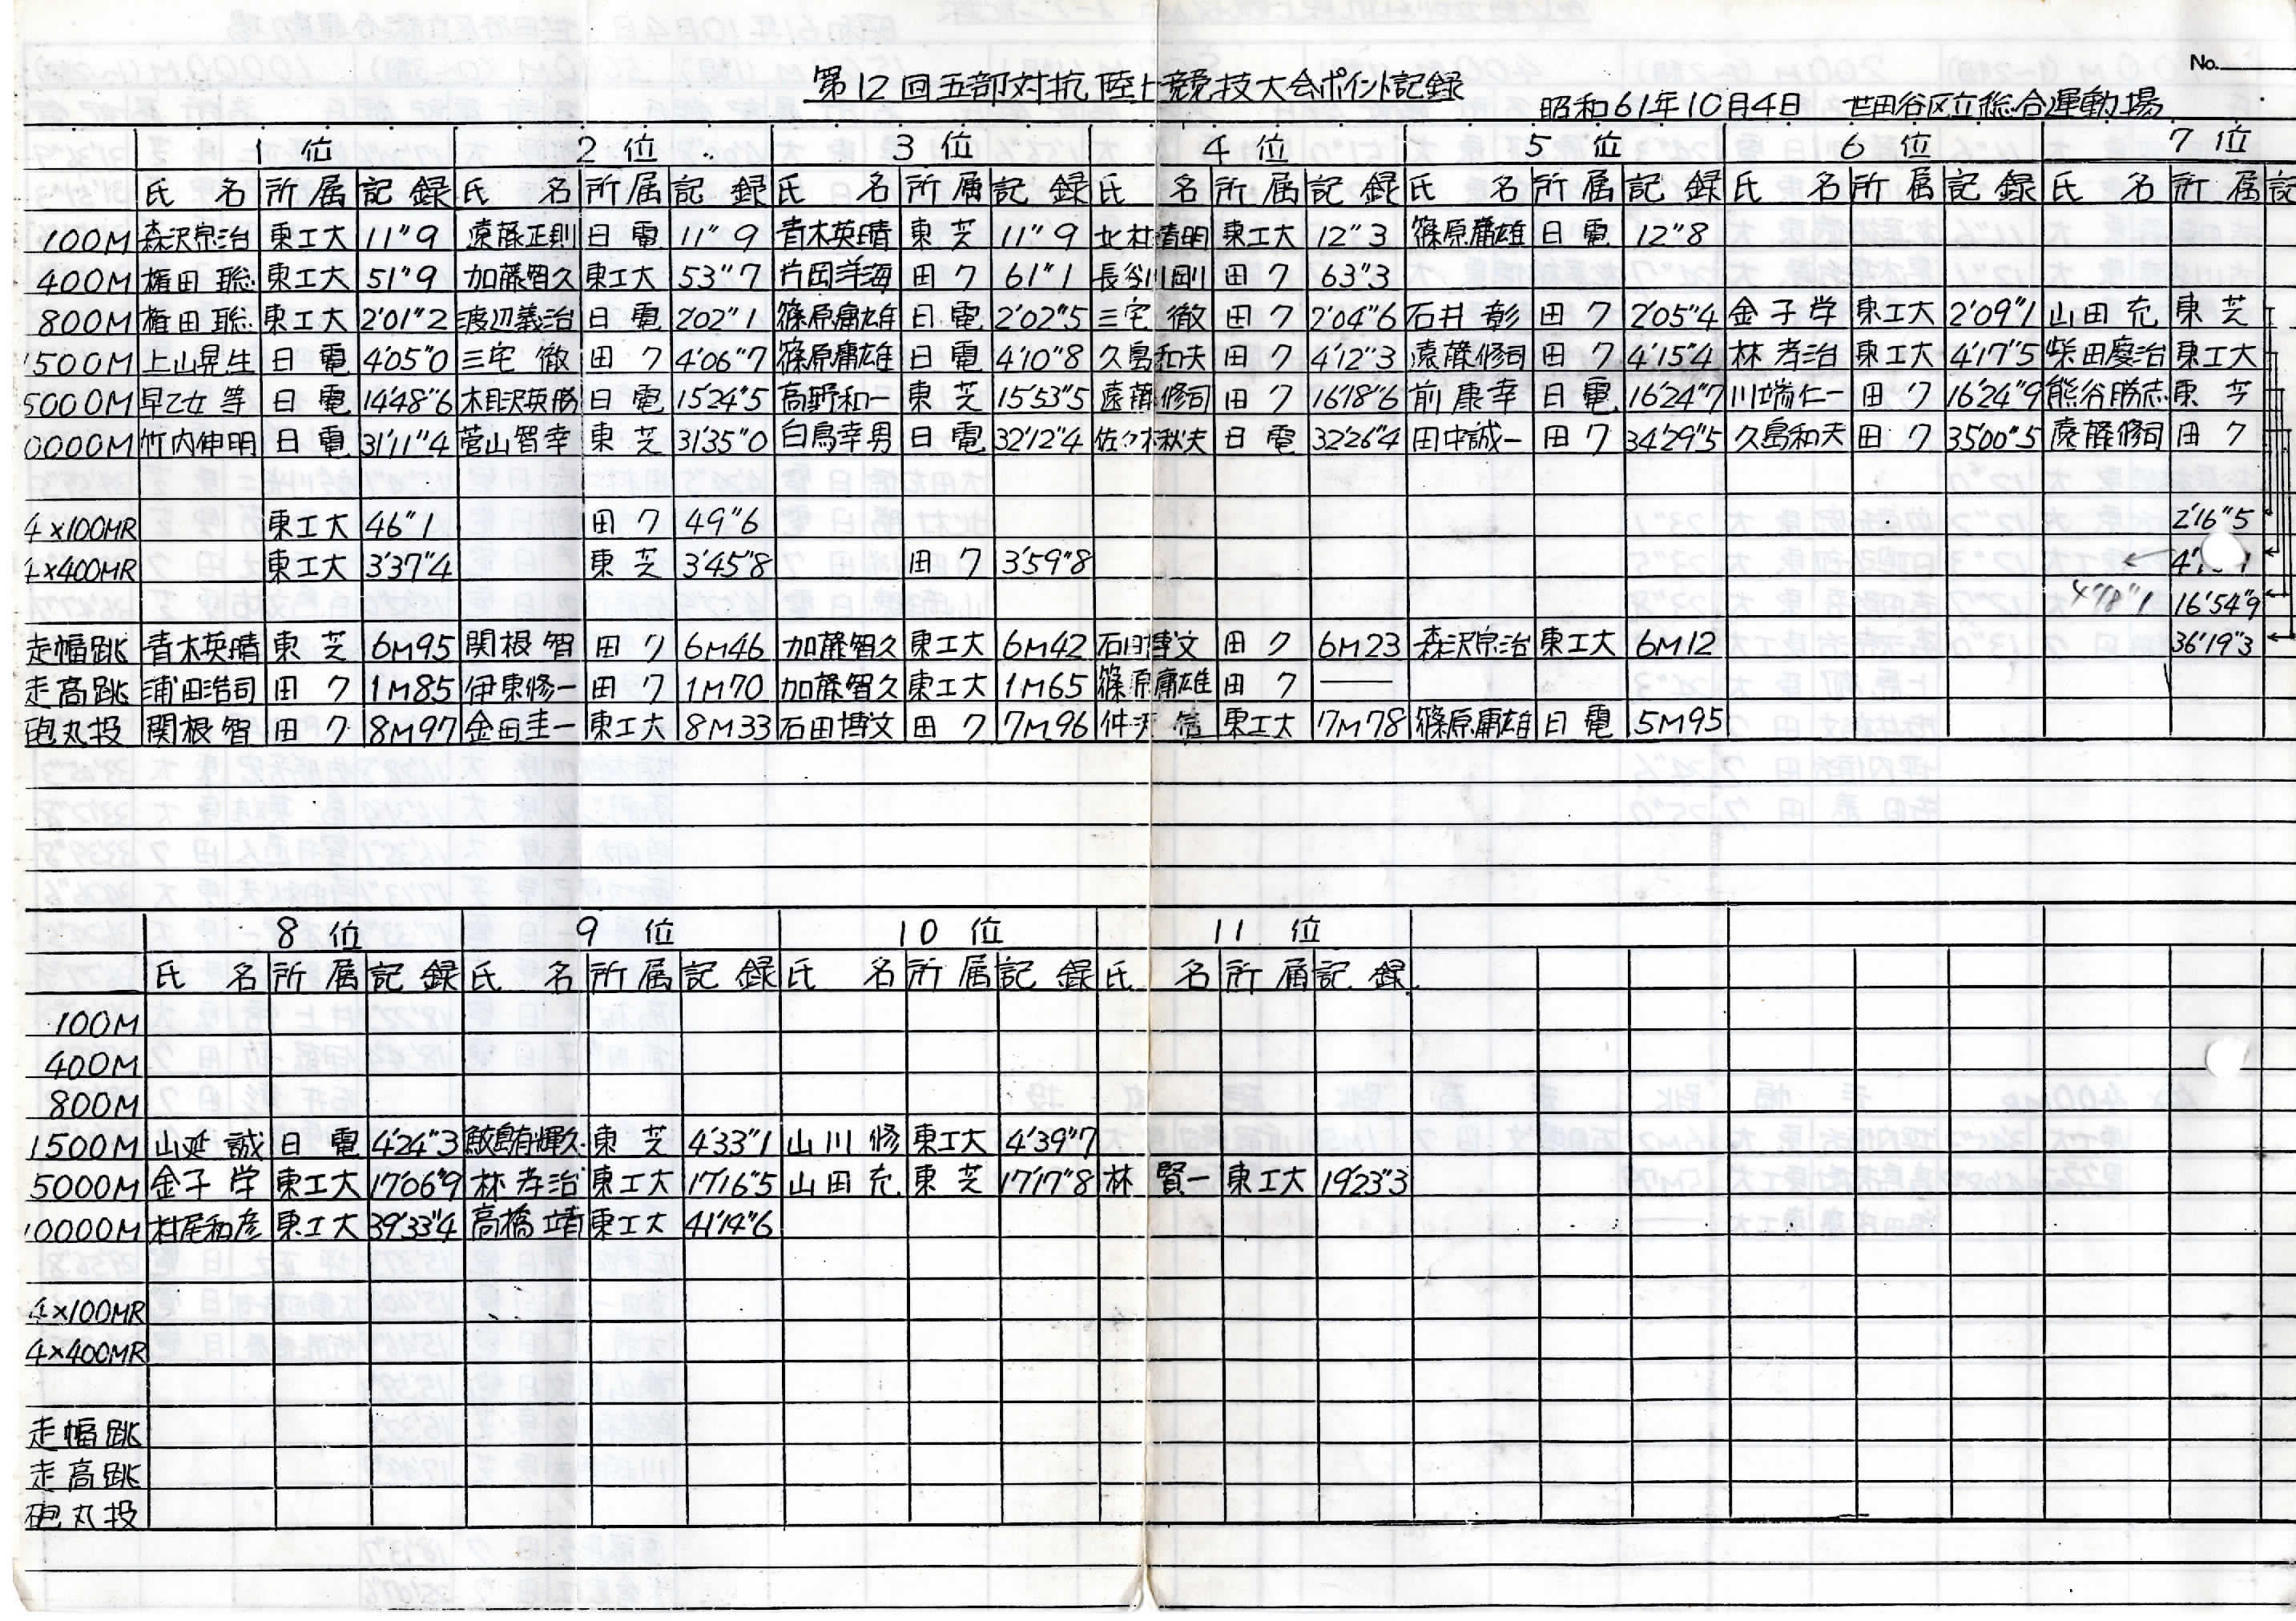 No.
第12回五部対抗陸上競技大会ポイント記録
昭和61年10月4日 世田谷区立総合運動場
1位 2位 3位 4位 5位 6位 7位
氏名 所属 記録 氏名 所属 記録 氏名 所属 記録 氏名 所属 記録 氏名 所属 記録 氏名 所属 記録 氏名 所属 記
100M 森沢宗治 東工大 11"9 遠藤正則 日電 11"9 青木英晴 東芝 11"9 北村清明 東工大 12"3 篠原庸雄 日電 12"8
400M 権田聡 東工大 51"9 加藤智久 東工大 53"7 片岡洋海 田ク 61"1 長谷川剛 田ク 63"3
800M 権田聡 東工大 2'01"2 渡辺義治 日電 2'02"1 篠原庸雄 日電 2'02"5 三宅徹 田ク 2'04"6 石井彰 田ク 2'05"4 金子学 東工大 2'09"1 山田充 東芝
1500M 上山晃生 日電 4'05"0 三宅徹 田ク 4'06"7 篠原庸雄 日電 4'10"8 久島和夫 田ク 4'12"3 遠藤修司 田ク 4'15"4 林孝治 東工大 4'17"5 柴田慶治 東工大
5000M 早乙女等 日電 14'48"6 相沢英勝 日電 15'24"5 高野和一 東芝 15'53"5 遠藤修司 田ク 16'18"6 前康幸 日電 16'24"7 川端仁一 田ク 16'24"9 熊谷勝志 東芝
0000M 竹内伸明 日電 31'11"4 菅山智幸 東芝 31'35"0 白鳥幸男 日電 32'12"4 佐々木秋夫 日電 32'26"4 田中誠一 田ク 34'29"5 久島和夫 田ク 35'00"5 遠藤修司 田ク
4×100MR 東工大 46"1 田ク 49"6 2'16"5
4×400MR 東工大 3'37"4 東芝 3'45"8 田ク 3'59"8
16'54"9
走幅跳 青木英晴 東芝 6M95 関根智 田ク 6M46 加藤智久 東工大 6M42 石田博文 田ク 6M23 森沢宗治 東工大 6M12 36'19"3
走高跳 浦田浩司 田ク 1M85 伊東修一 田ク 1M70 加藤智久 東工大 1M65 篠原庸雄 田ク ——
砲丸投 関根智 田ク 8M97 金田圭一 東工大 8M33 石田博文 田ク 7M96 東工大 7M78 篠原庸雄 日電 5M95
8位 9位 10位 11位
氏名 所属 記録 氏名 所属 記録 氏名 所属 記録 氏名 所属 記録
100M
400M
800M
1500M 山延誠 日電 4'24"3 鮫島有輝久 東芝 4'33"1 山川修 東工大 4'39"7
5000M 金子学 東工大 17'06"9 林孝治 東工大 17'16"5 山田充 東芝 17'17"8 林賢一 東工大 19'23"3
0000M 村尾和彦 東工大 39'33"4 高橋靖 東工大 41'14"6
4×100MR
4×400MR
走幅跳
走高跳
砲丸投